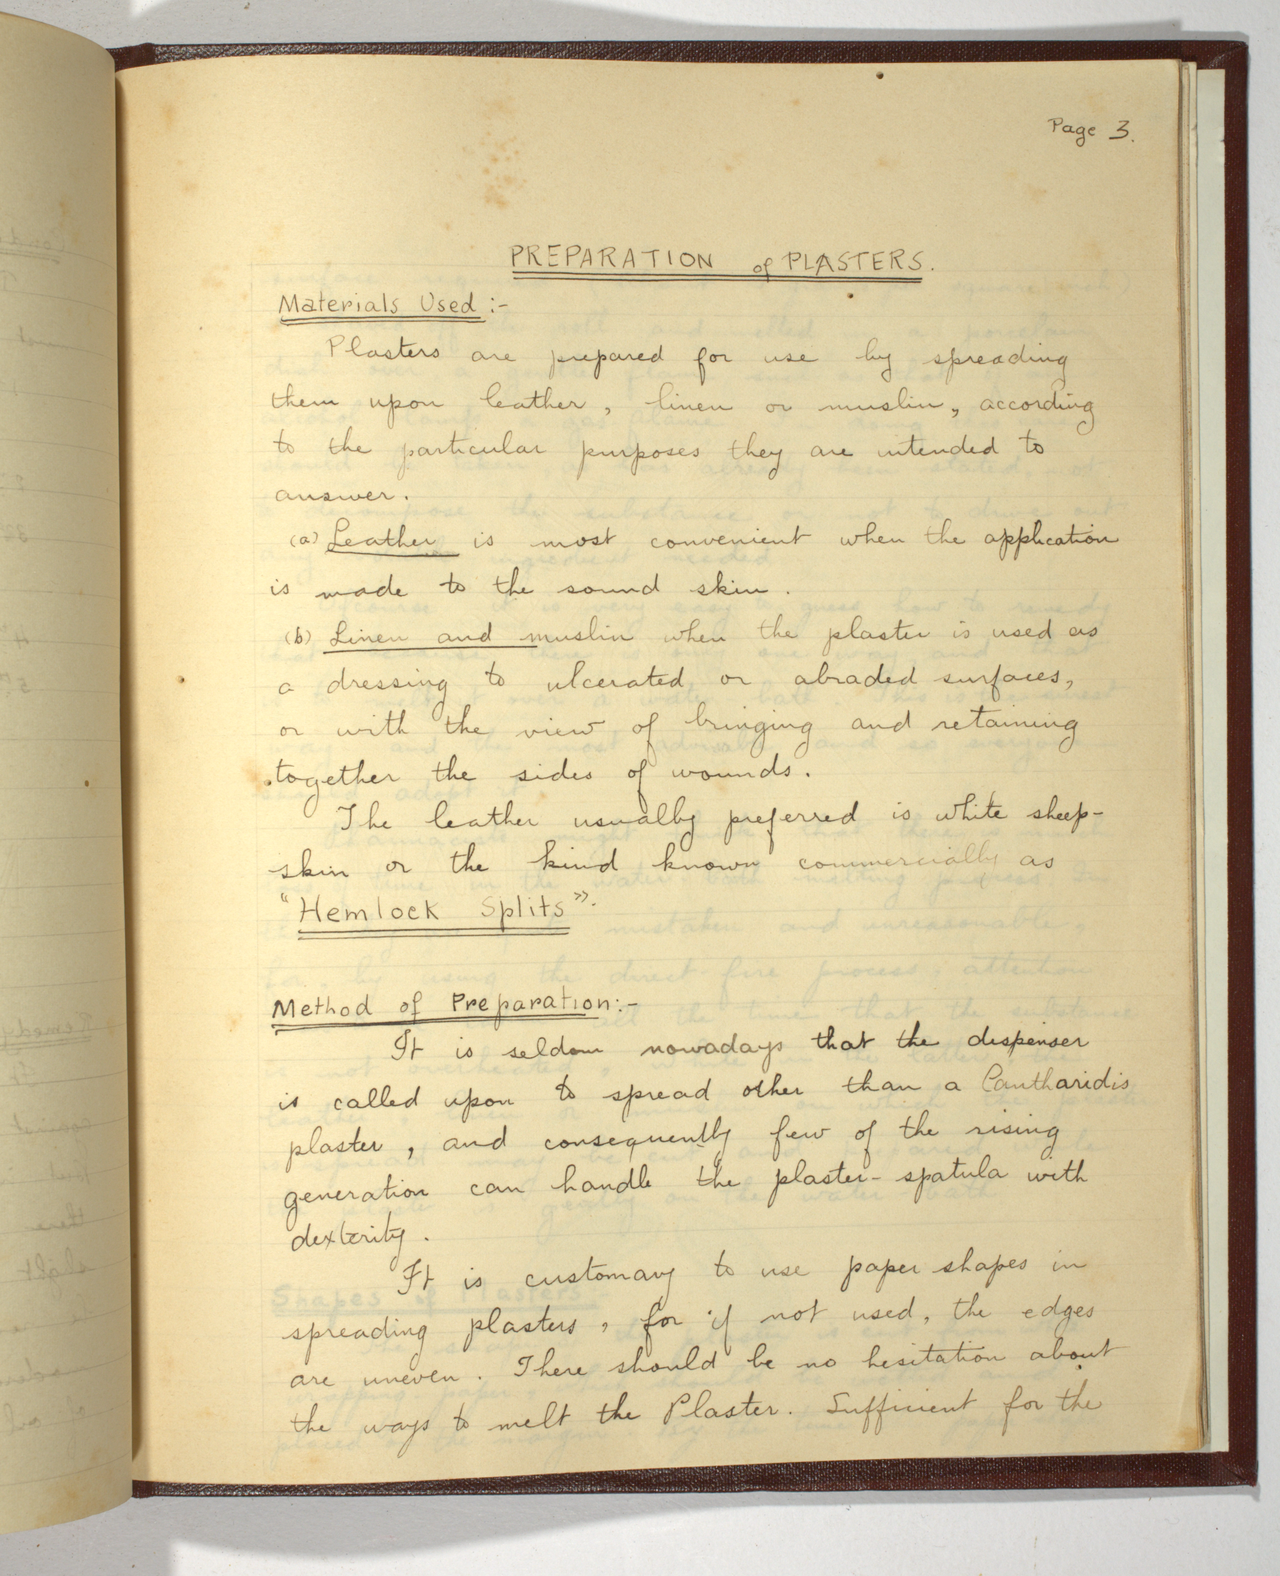 Page 3.
PREPARATION of PLASTERS.
Materials Used :-
Plasters are prepared for use by spreading
them upon leather, linen or muslin, according
to the particular purposes they are intended to
answer.
(a) Leather is most convenient when the application
is made to the sound skin.
(b) Linen and muslin when the plaster is used as
a dressing to ulcerated or abraded surfaces,
or with the view of bringing and retaining
together the sides of wounds.
The leather usually preferred is white sheep-
skin or the kind known commercially as
"Hemlock Splits".
Method of Preparation:-
It is seldom nowadays that the dispenser
is called upon to spread other than a Cantharidis
plaster, and consequently few of the rising
generation can handle the plaster-spatula with
dexterity.
It is customary to use paper shapes in
spreading plasters, for if not used, the edges
are uneven. There should be no hesitation about
the ways to melt the Plaster. Sufficient for the